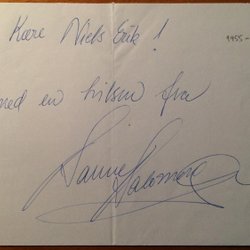 Kære Niels Erik!
1955-
med en hilsen fra
Sanne Salomonsen